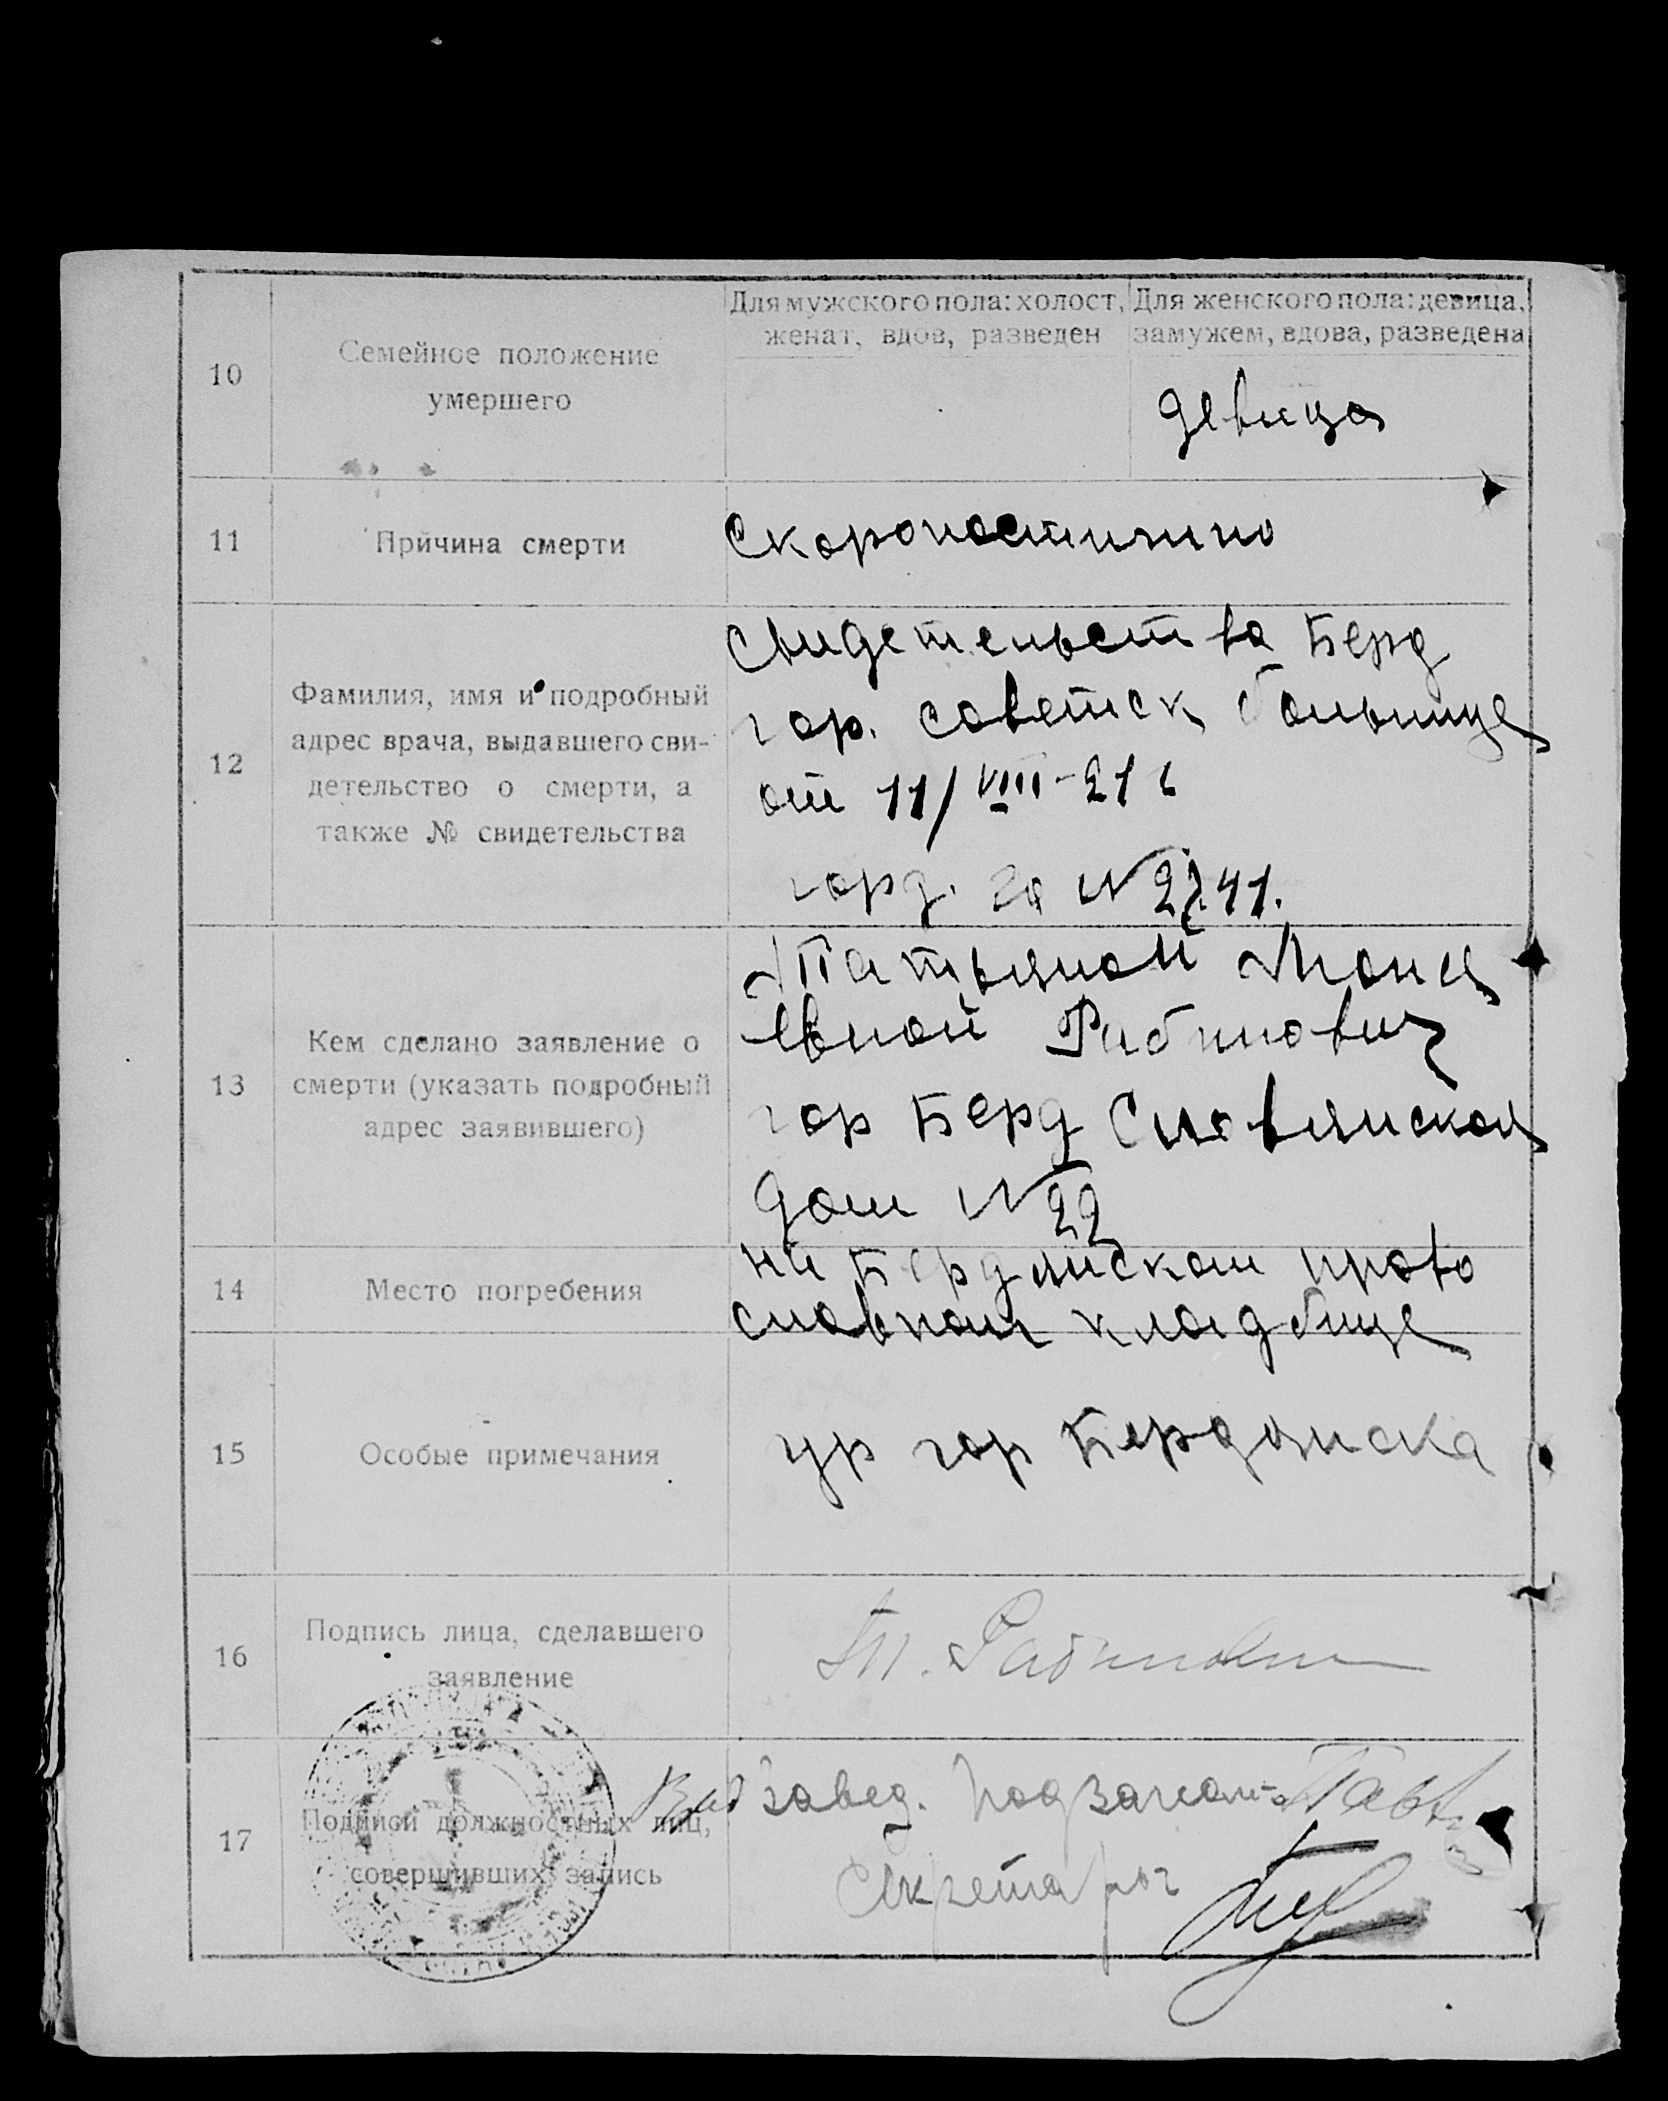 10
Семейное положение
умершего
Для мужского пола: холост,
женат, вдов, разведен
Для женского пола: девица,
замужем, вдова, разведена
девица
11
Причина смерти
Скоропостижно
12
Фамилия, имя и подробный
адрес врача, выдавшего сви-
детельство о смерти, а
также № свидетельства
Свидетельства Берд
гор. советск больнице
от 11/VIII-21 г
за № 2741.
13
Кем сделано заявление о
смерти (указать подробный
адрес заявившего)
Татьяной Моисе
евной Рабинович
гор Берд Словянская
дом № 22
14
Место погребения
на Бердянском право
славном кладбище
15
Особые примечания
ур гор Бердянска
16
Подпись лица, сделавшего
заявление
Т. Рабинович
17
Подписи должностных лиц,
совершивших запись
завед. Подзагсом
Секретарь